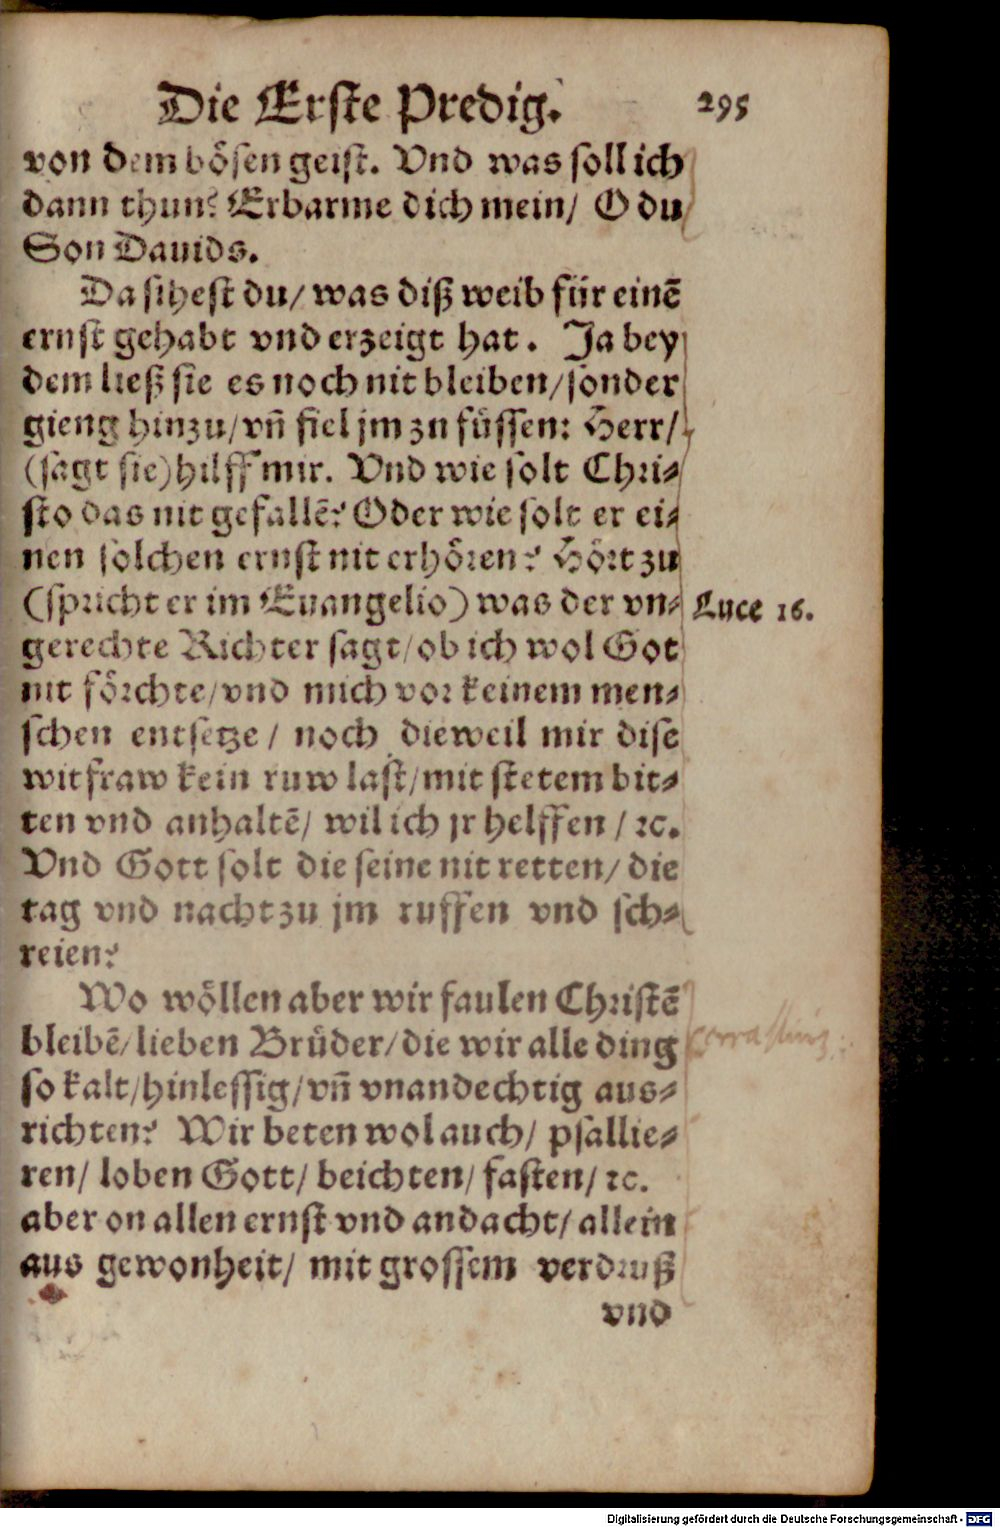 Die Erste Predig. 295
von dem bösen geist. Vnd was soll ich
dann thun? Erbarme dich mein/ O du
Son Dauids.
Da sihest du/ was diß weib für einē
ernst gehabt vnd erzeigt hat. Ja bey
dem ließ sie es noch nit bleiben/ sonder
gieng hinzu/ vñ fiel jm zu füssen: Herr/
(sagt sie) hilff mir. Vnd wie solt Chri-
sto das nit gefallē? Oder wie solt er ei-
nen solchen ernst nit erhören? Hört zu
(spricht er im Euangelio) was der vn-
Luce 16.
gerechte Richter sagt/ ob ich wol Got
nit förchte/ vnd mich vor keinem men-
schen entsetze/ noch dieweil mir dise
witfraw kein ruw last/ mit stetem bit-
ten vnd anhaltē/ wil ich jr helffen/ ꝛc.
Vnd Gott solt die seine nit retten/ die
tag vnd nacht zu jm ruffen vnd sch-
reien?
Wo wöllen aber wir faulen Christē
bleibē/ lieben Brüder/ die wir alle ding
so kalt/ hinlessig/ vñ vnandechtig aus-
richten? Wir beten wol auch/ psallie-
ren/ loben Gott/ beichten/ fasten/ ꝛc.
aber on allen ernst vnd andacht/ allein
aus gewonheit/ mit grossem verdruß
vnd
Digitalisierung gefördert durch die Deutsche Forschungsgemeinschaft - DFG